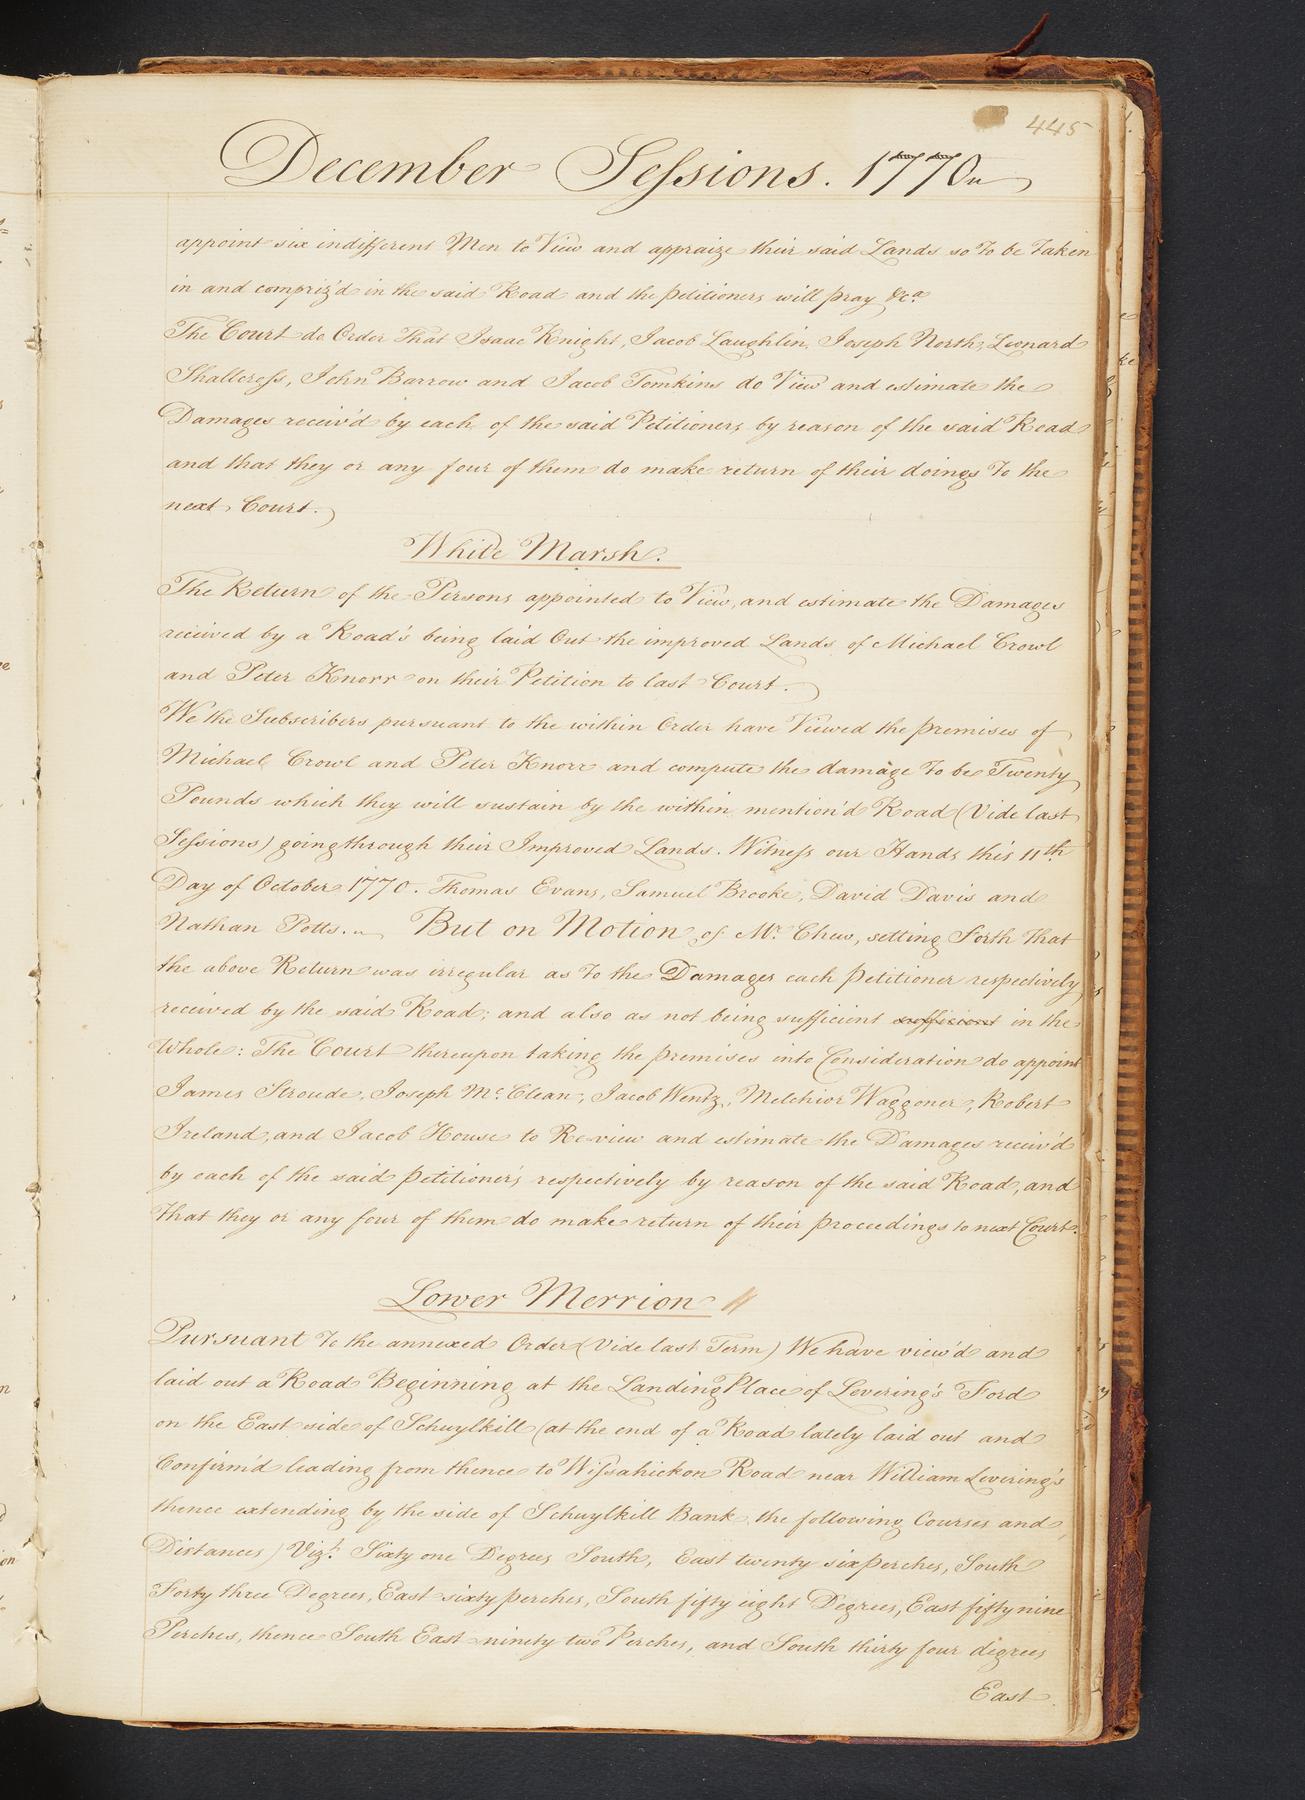 445
December Sessions. 1770
appoint six indifferent Men to View and appraize their said Lands so To be Taken
in and compriz'd in the said Road and the Petitioners will pray &c.a
The Court do Order That Isaac Knight, Jacob Laughlin, Joseph North, Leonard
Shallcross, John Barrow and Jacob Tomkins do View and estimate the
Damages receiv'd by each of the said Petitioners by reason of the said Road
and that they or any four of them do make return of their doings To the
next Court.
White Marsh.
The Return of the Persons appointed to View, and estimate the Damages
received by a Road's being laid Out the improved Lands of Michael Crowl
and Peter Knorr on their Petition to last Court.
We the Subscribers pursuant to the within Order have Viewed the premises of
Michael Crowl and Peter Knorr and compute the damage To be Twenty
Pounds which they will sustain by the within mention'd Road (Vide last
Sessions) going through their Improved Lands. Witness our Hands this 11th
Day of October 1770. Thomas Evans, Samuel Brooke, David Davis and
Nathan Potts. But on Motion of Mr. Chew, setting Forth That
the above Return was irregular as To the Damages each Petitioner respectively
received by the said Road; and also as not being sufficient sufficient in the
Whole: The Court thereupon taking the premises into Consideration do appoint
James Stroude, Joseph Mc.Clean, Jacob Wentz, Melchior Waggoner, Robert
Ireland, and Jacob House to Re-view and estimate the Damages receiv'd
by each of the said Petitioner's respectively by reason of the said Road, and
That they or any four of them do make return of their proceedings to next Court.
Lower Merrion
Pursuant To the annexed Order (Vide last Term) We have view'd and
laid out a Road Beginning at the Landing Place of Levering's Ford
on the East side of Schuylkill (at the end of a Road lately laid out and
Confirm'd leading from thence to Wissahickon Road near William Levering's
thence extending by the side of Schuylkill Bank the following Courses and
Distances) Vizt. Sixty one Degrees South, East twenty six perches, South
Forty three Degrees, East sixty perches, South fifty eight Degrees, East fifty nine
Perches, thence South East ninety two Perches, and South thirty four degrees
East